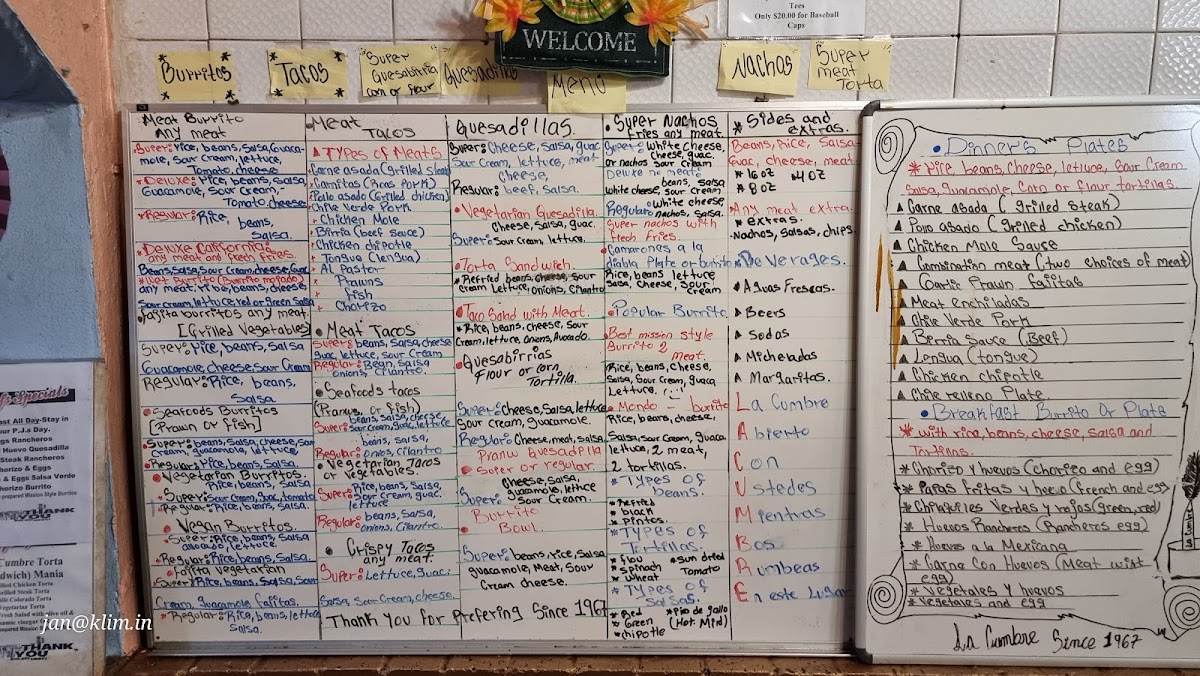 Tees
Only $20.00 for Baseball
Caps
WELCOME
Menu
Burritos
Tacos
Super
Quesabirria
corn or flour
Quesadillas
Nachos
Super
meat
Torta
Meat Burrito
Any meat
Super: Rice, beans, Salsa, Guaca-
mole, Sour Cream, lettuce,
Tomato, cheese
Deluxe: Rice, beans, Salsa
Guacamole, Sour Cream,
Tomato, cheese
Regular: Rice, beans,
Salsa.
Deluxe California:
any meat and french fries.
Beans, Salsa, Sour Cream, cheese, Guac
Wet Burrito (Burrito mojado)
any meat, rice, beans, cheese
Sour cream, lettuce red or green Salsa
Fajita burritos any meat.
[Grilled Vegetables]
Super: Rice, beans, Salsa
Guacamole Cheese, Sour Cream
Regular: Rice, beans,
Salsa
Seafoods Burritos
[Prawn or fish]
Super: beans, Salsa, cheese, Sour
cream, guacamole, lettuce
Regular: Rice, beans, Salsa
Vegetarian Burritos
Rice, beans, Salsa
Super: Sour Cream, guac, tomato
Regular: Rice, beans, Salsa
Vegan Burritos.
Super: Rice, beans, Salsa
avocado, lettuce.
Regular: Rice, beans, Salsa.
Fajita Vegetarian
Super: Rice, beans, Salsa, Sour
Cream, guacamole fajitas.
Regular: Rice, beans, lettuce
Salsa.
Meat
Tacos
Types of Meats
Carne asada (grilled steak)
Carnitas (Fried Pork)
Pollo asado (Grilled chicken)
Chile Verde Pork
Chicken Mole
Birria (beef sauce)
Chicken chipotle
Tongue (lengua)
Al Pastor
Prawns
Fish
Chorizo
Meat Tacos
Super: beans, Salsa, cheese
guac, lettuce, Sour Cream
Regular: Bean, Salsa
onions, Cilantro.
Seafoods tacos
(Prawns, or fish)
Super: beans, Salsa, cheese,
Sour cream, guac, lettuce
beans, salsa,
Regular: onions, cilantro
Vegetarian Tacos
or vegetables.
rice, beans, Salsa,
Super: Sour Cream, guac.
Regular: beans, Salsa,
onions, Cilantro.
Crispy Tacos
any meat.
Super: Lettuce, Guac.
Salsa, Sour Cream, cheese.
Thank you for Prefering Since 1967
Quesadillas.
Super: Cheese, Salsa, guac
Sour Cream, lettuce, meat
cheese,
Regular: beef, salsa.
Vegetarian Quesadilla.
Cheese, Salsa, guac.
Super: Sour Cream, lettuce.
Torta Sandwich.
Refried beans, cheese, Sour
cream Lettuce, onions, Cilantro
Taco Salad with Meat.
Rice, beans, cheese, Sour
Cream, lettuce, Onions, Avocado.
Quesabirrias
Flour or corn
Tortilla.
Super: Cheese, Salsa, lettuce
Sour cream, guacamole.
Regular: Cheese, meat, salsa
Prawn Quesadilla
Super or regular
Cheese, Salsa,
guacamole, lettuce
Super: Sour Cream.
Burrito
Bowl.
Super: beans rice, Salsa
guacamole, Meat, Sour
Cream cheese.
Super Nachos
Fries any meat.
Super: White cheese,
cheese, guac,
or nachos sour cream
Deluxe no meat:
beans, salsa
white cheese, sour cream
Regular: White cheese,
nachos, Salsa.
Super nachos with
french fries.
Camarones a la
diabla Plate or burrito
Rice, beans lettuce
Salsa, Cheese, Sour
cream
Popular Burrito
Best mission style
Burrito 2
meat.
Rice, beans, Cheese,
Salsa, Sour Cream, guaca
Lettuce.
Mondo - burrito
Rice, beans, cheese,
Salsa, Sour Cream, guaca
lettuce, 2 meat,
2 tortillas.
Types of
beans.
refried
black
pintos.
Types of
Tortillas.
flou
sun dried
Spinach
Tomato
Wheat
Types of
Salsas.
Red
Pico de gallo
Green
(Hot, Mild)
chipotle
Sides and
extras.
Beans, Rice, Salsa
Guac, cheese, meat
16 oz
4 oz
8 oz
Any meat extra.
extras.
Nachos, Salsas, chips.
Beverages.
Aguas Frescas.
Beers
Sodas
Micheladas
Margaritas.
La Cumbre
Abierto
Con
Ustedes
Mientras
Bos
Rumbeas
En este Lugar
Dinner's Plates
Rice, beans, Cheese, lettuce, Sour Cream
Salsa, guacamole, Corn or flour tortillas.
Carne asada (grilled steak)
Pollo asado (grilled chicken)
Chicken Mole Sauce
Combination meat (two choices of meat)
Garlic Prawn fajitas
Meat enchiladas
Chile Verde Pork
Berria Sauce (Beef)
Lengua (tongue)
Chicken chipotle
Chile relleno Plate
Breakfast Burrito Or Plate
with rice, beans, cheese, salsa and
Chorizo y huevos (Chorizo and egg)
Papas fritas y huevo (french and egg
Chilaquiles Verdes y rojos (green, red)
Huevos Rancheros (Rancheros egg)
Huevos a la Mexicana
Carne Con Huevos (Meat wiht
egg)
Vegetales y huevos
Vegetales and egg
La Cumbre Since 1967
Specials
ast All Day-Stay in
ur P.J.s Day.
gs Rancheros
Huevo Quesadilla
Steak Rancheros
horizo & Eggs
Eggs Salsa Verde
horizo Burrito
prepared Mission Style Burritos
THANK
YOU
Cumbre Torta
dwich) Mania
lled Chicken Torta
illed Steak Torta
le Colorado Torta
egetarian Torta
THANK
YOU
jan@klim.in